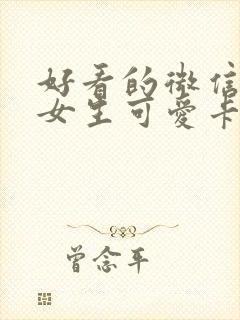 好看的微信
女生可爱卡
曾念平